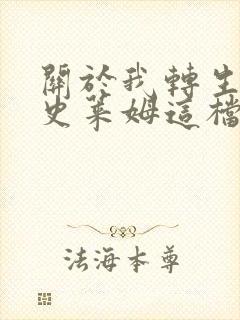 關於我轉生
史萊姆這檔
法海本尊